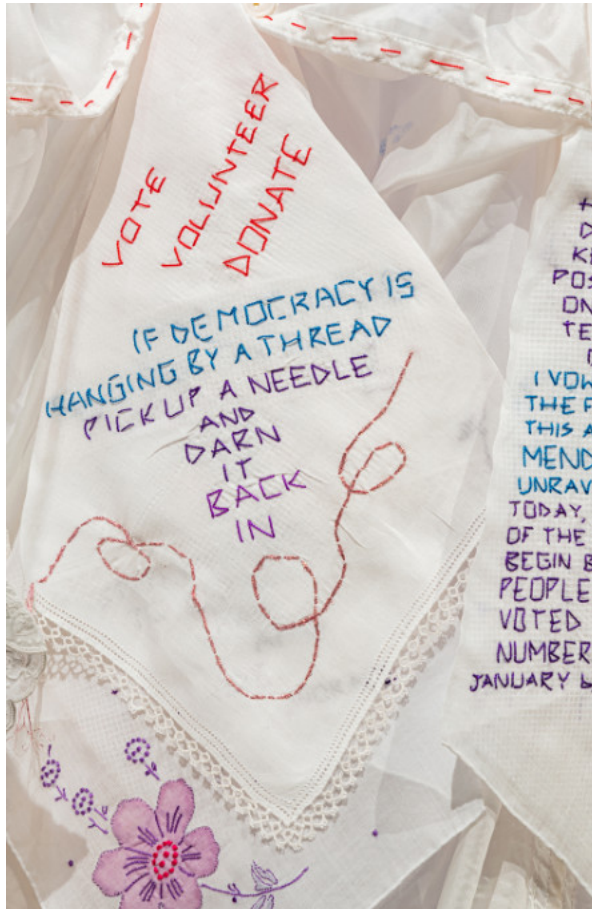 VOTE
VOLUNTEER
DONATE
IF DEMOCRACY IS
HANGING BY A THREAD
PICK UP A NEEDLE
AND
DARN
IT
BACK
IN
POS
ON
TE
I VOW
THE
THIS A
MEND
UNRAV
TODAY,
OF THE
BEGIN B
PEOPLE
VOTED
NUMBER
JANUARY 6